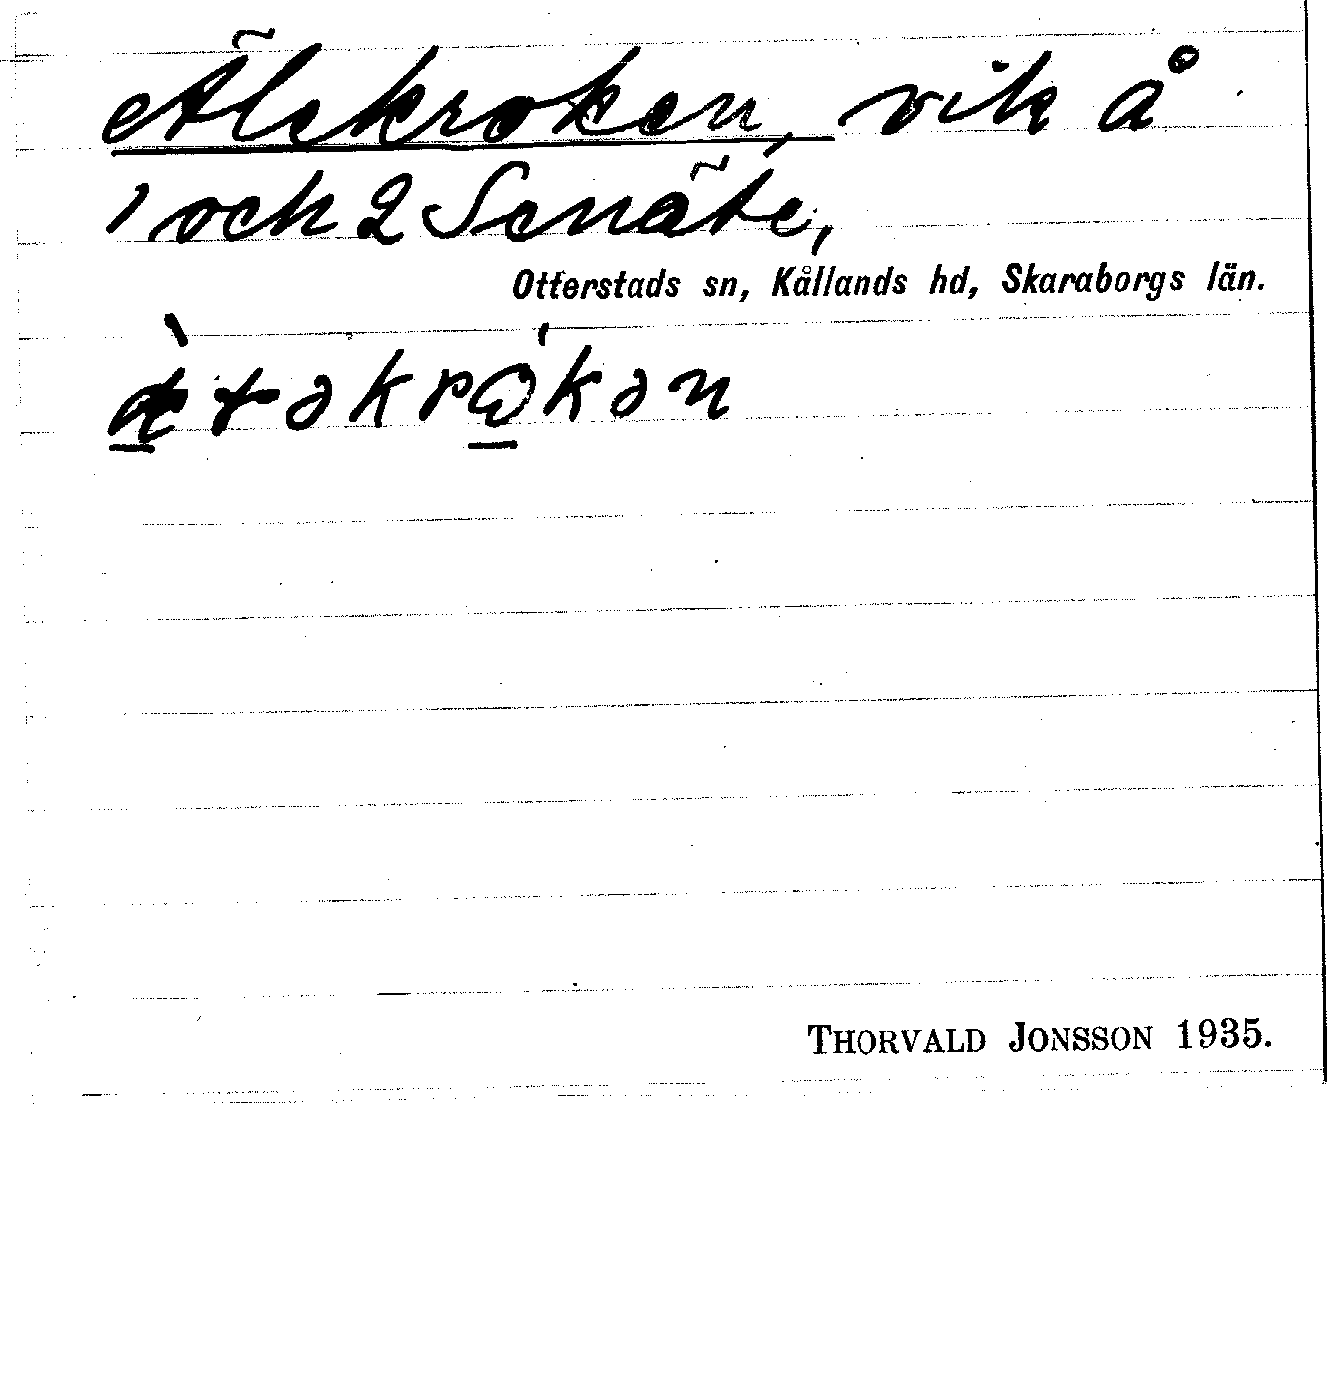 Älekroken, vik å
1 och 2 Senäte,
Otterstads sn, Kållands hd, Skaraborgs län.
THORVALD JONSSON 1935.